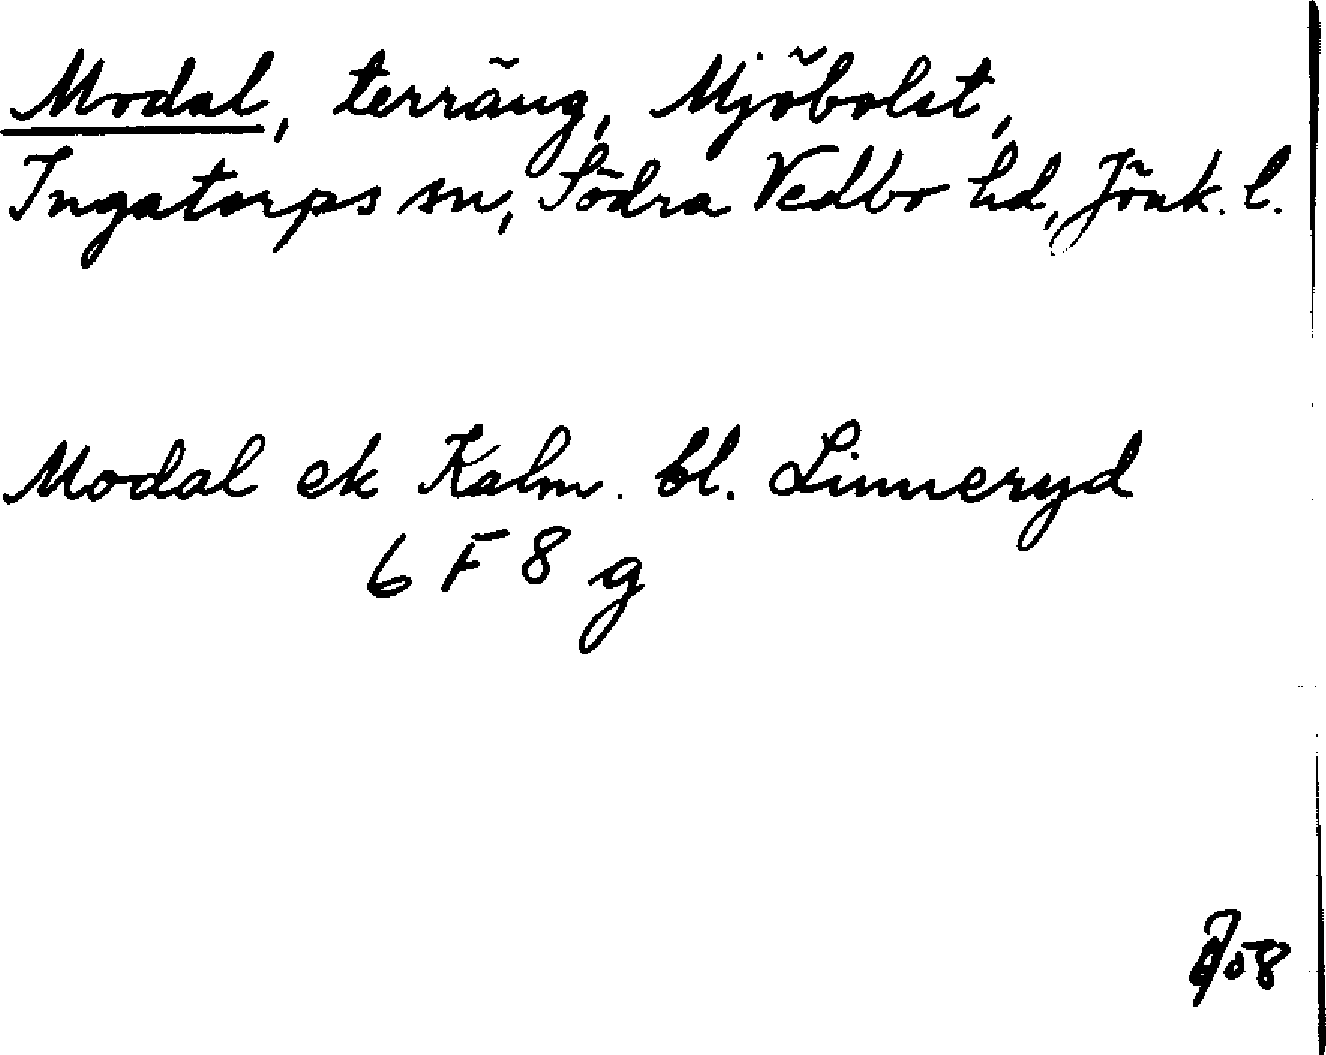 Modal, terräng, Mjöbolst,
Ingatorps sn, Södra Vedbo hd, Jönk. l.
Modal ek Kalm. bl. Linneryd
6 F 8 g